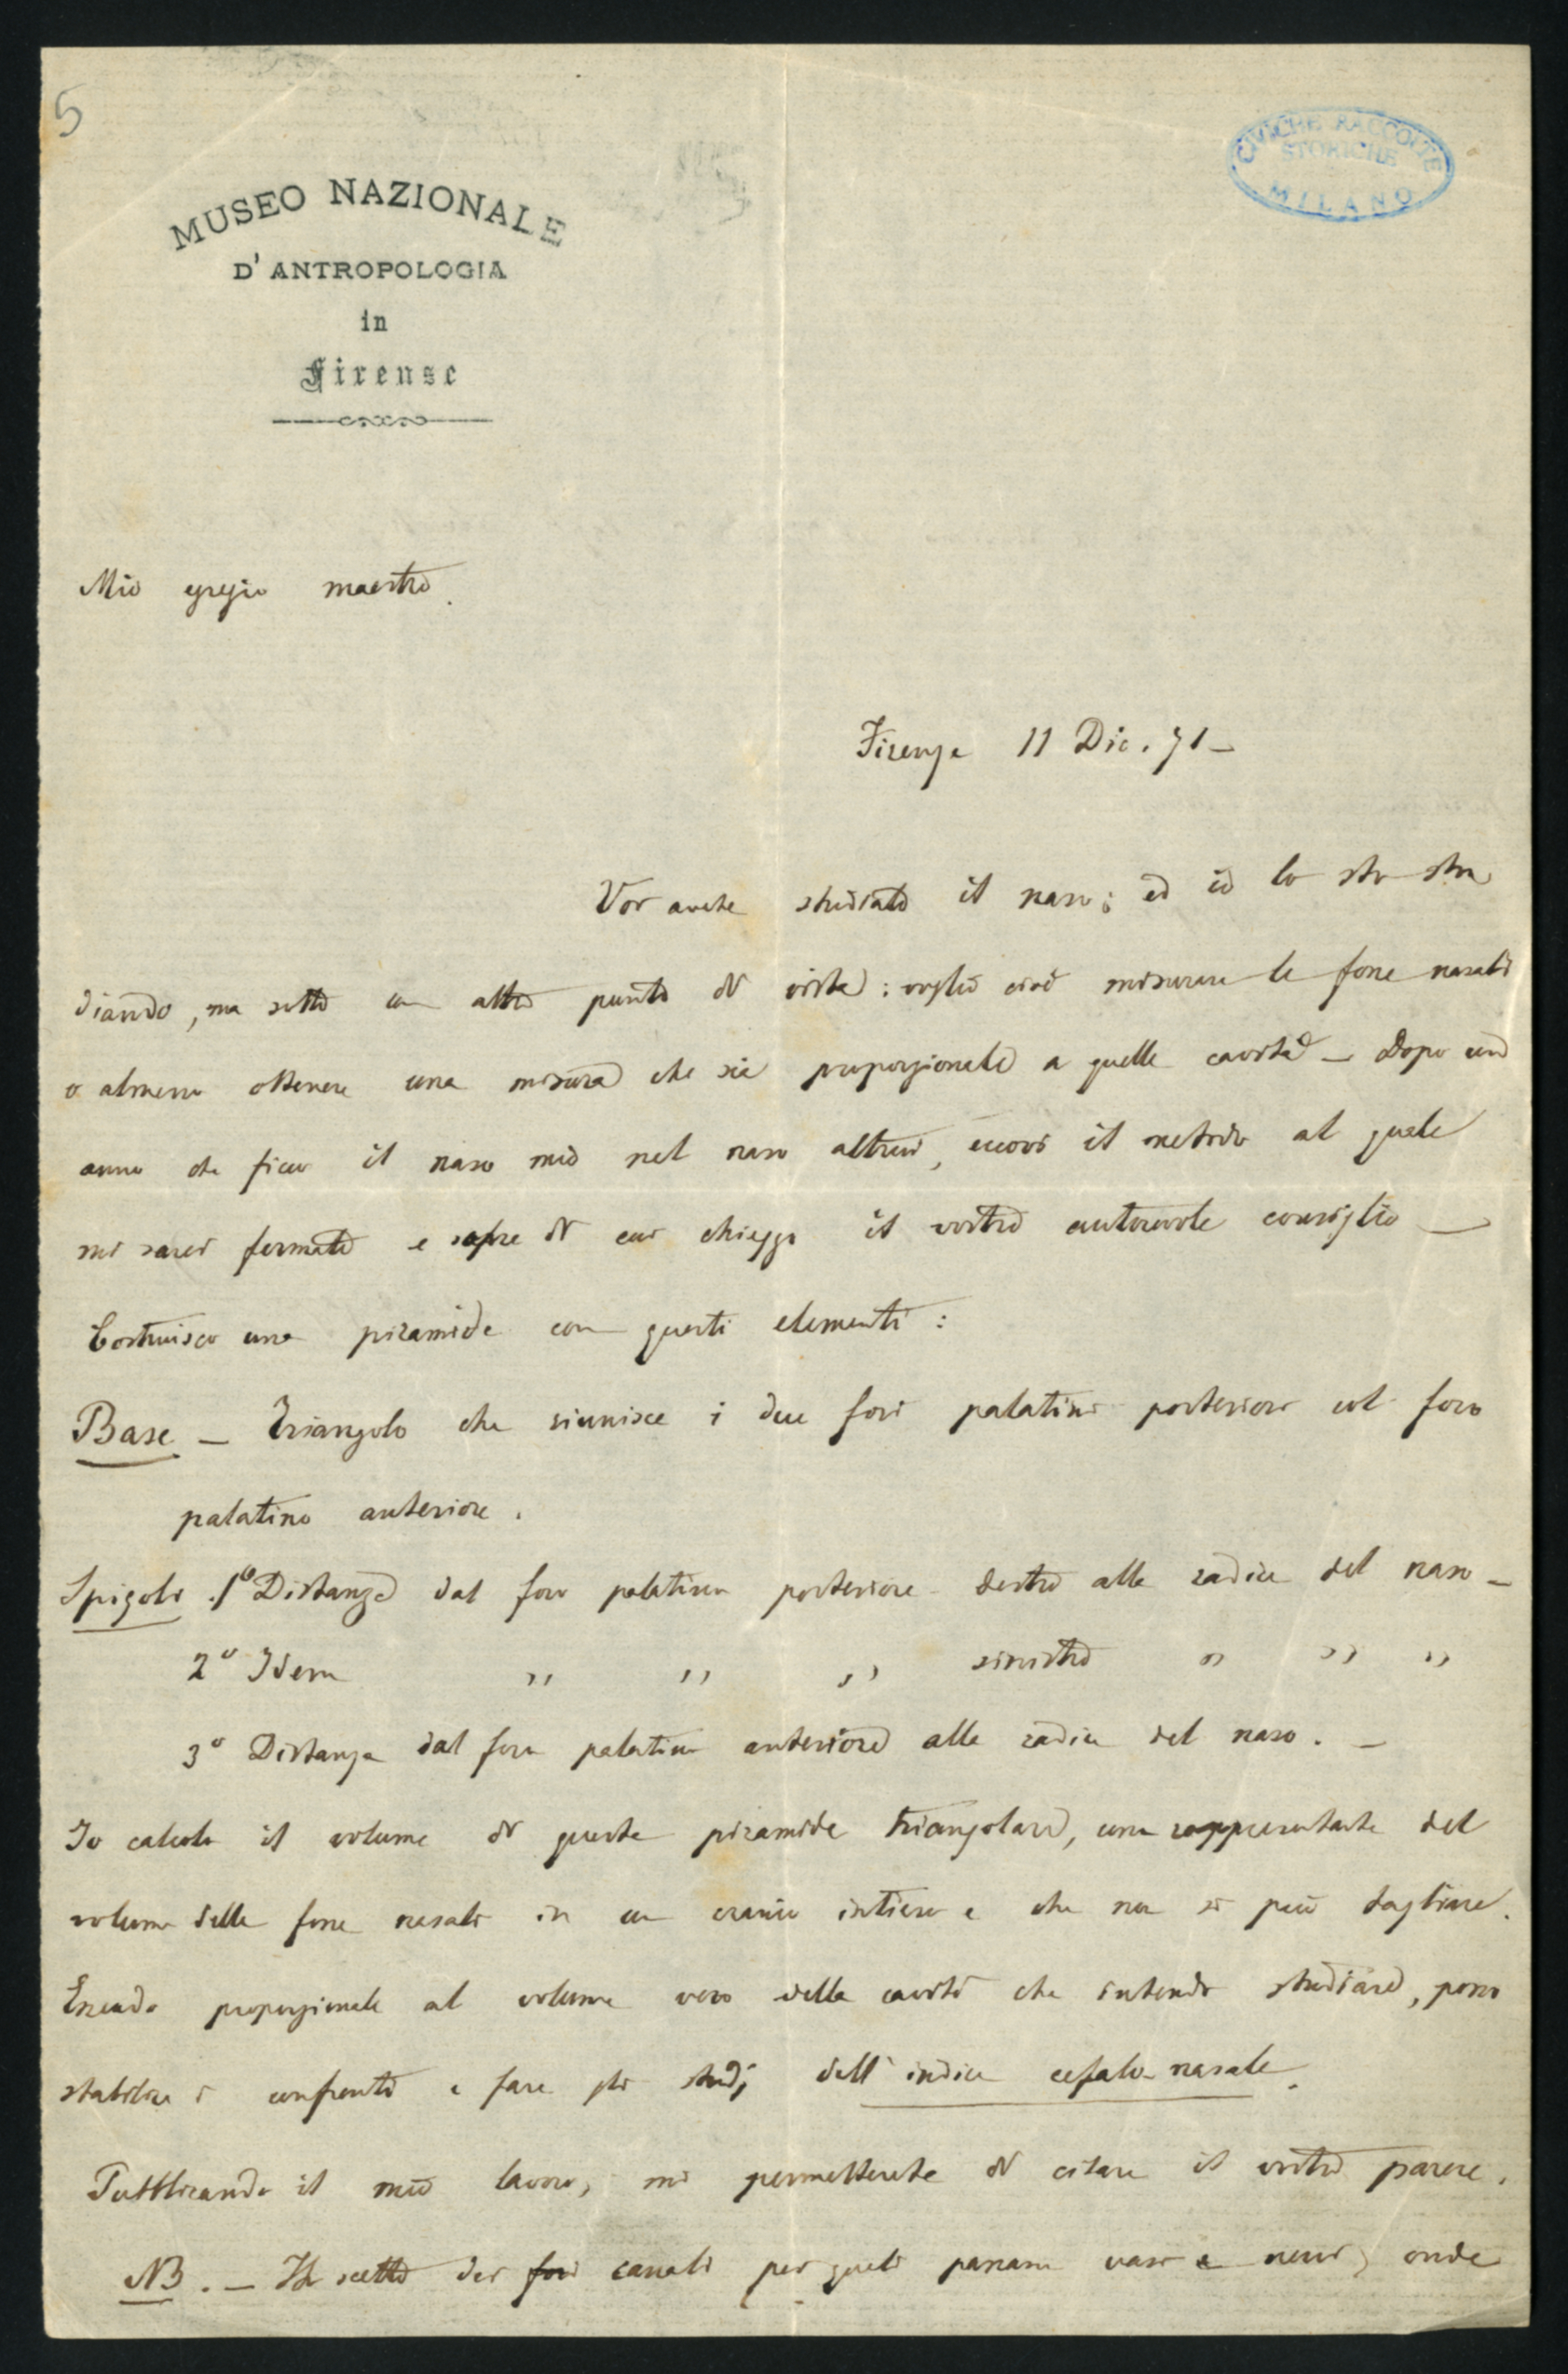 5
CIVICHE RACCOLTE
STORICHE
MILANO
MUSEO NAZIONALE
D'ANTROPOLOGIA
in
Firenze
Mio egregio maestro.
Firenze 11 Dic. 71 —
Voi avete studiato il naso; ed io lo sto stu
diando, ma sotto un altro punto di vista: voglio cioè misurare le fosse nasali
o almeno ottenere una misura che sia proporzionale a quelle cavità — Dopo un
anno che ficco il naso mio nel naso altrui, eccovi il metodo al quale
mi sarei fermato e sopra di cui chieggo il vostro autorevole consiglio —
Costruisco una piramide con questi elementi:
Base — Triangolo che riunisce i due fori palatini posteriori col foro
palatino anteriore.
Spigoli. 1º Distanza dal foro palatino posteriore destro alla radice del naso —
2º Idem ,, ,, ,, sinistro ,, ,, ,,
3º Distanza dal foro palatino anteriore alla radice del naso. —
Io calcolo il volume di questa piramide triangolare, come rappresentante del
volume delle fosse nasali in un cranio intiero e che non si può tagliare.
Essendo proporzionale al volume vero della cavità che intendo studiare, posso
stabilire i confronti e fare gli studj dell'indice cefalo-nasale.
Pubblicando il mio lavoro, mi permetterete di citare il vostro parere.
NB. — Ho scelto dei fori canali pei quali passano vasi e nervi, onde